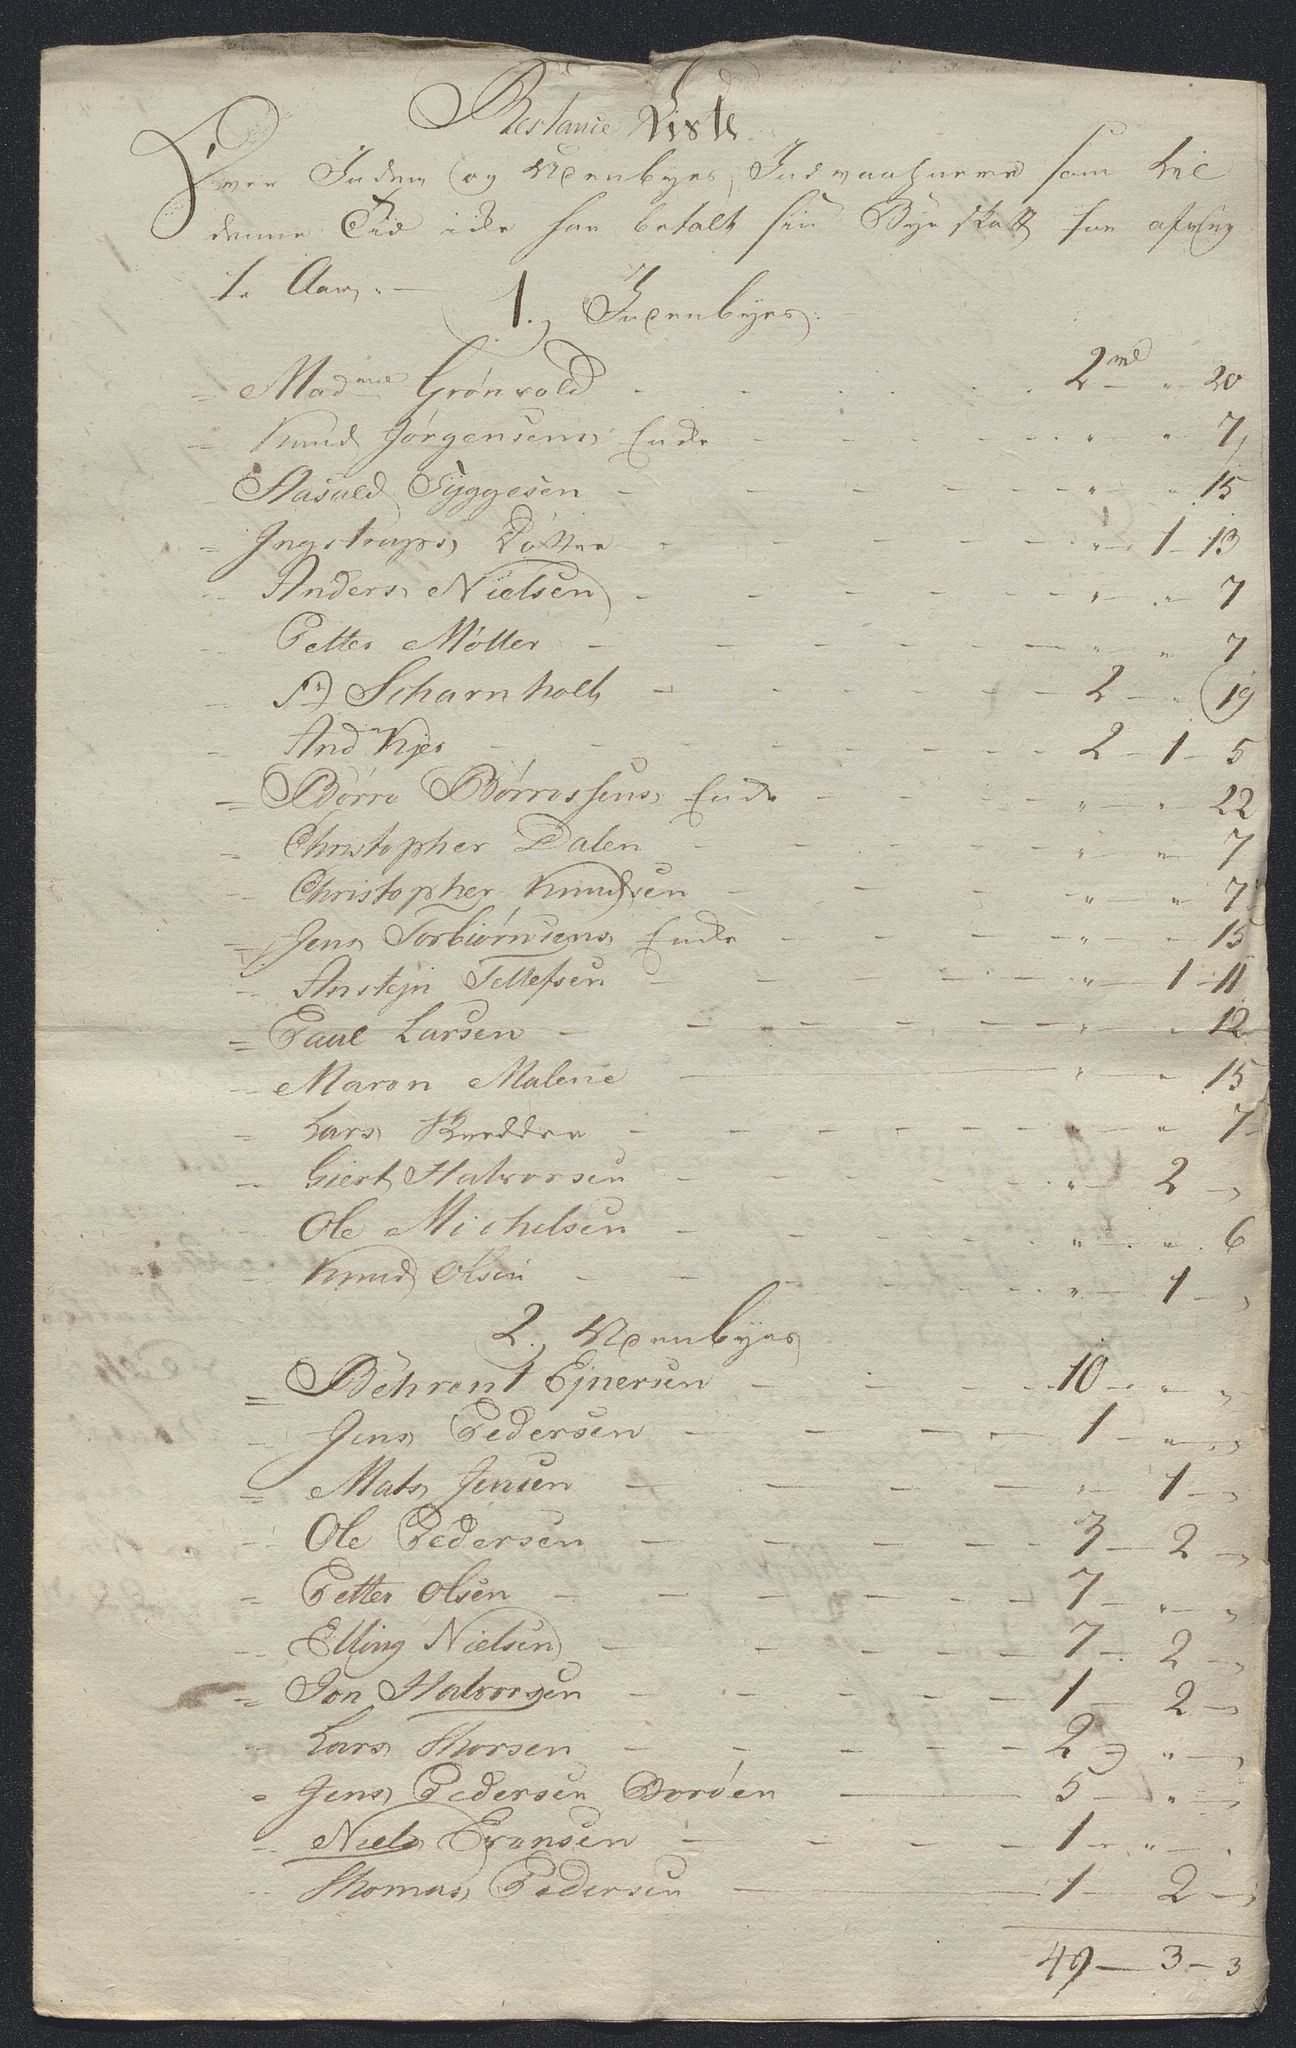 Restance Liste
Over Inden og Udenbyes Indvaahnere som til
denne Tid ikke har betalt sin Bye skatt for afvigt
1. Aar. —
1. Indenbyes.
= Madme Grönvold - - - 2 ml " 20
- Knud Jörgensens Enke - - - " " 7
- Aasuld Tyggesen - - - " " 15
= Ingstrups Dötter - - - " 1 - 13
- Anders Nielsen - - - " " 7
- Petter Möller - - - " " 7
- Sr Scharnholt - - - 2 - " 19
- Andr Kjer - - - 2 - 1 - 5
= Börre Börresens Enke - - - " " 22
- Christopher Dalen - - - " " 7
- Christopher Knudsen - - - " " 7
- Jens Torbiörnsens Enke - - - " " 15
- Anstejn Tellefsen - - - " 1 - 11
= Paul Larsen - - - " " 12
- Maron Malene — " " 15
- Lars Skredder - - - " " 7
- Giert Halvorsen - - - " 2 - "
- Ole Michelsen - - - " " 6
- Knud Olsen - - - " 1 - "
2. Udenbyes
= Behront Ejnersen - - - 10 - " "
- Jens Pedersen - - - 1 - " "
= Mats Jensen - - - " 1 - "
- Ole Pedersen - - - 3 - 2 - "
= Petter Olsen - - - 7 - " - "
- Elling Nielsen - - - 7 - 2 - "
= Jon Halvorsen - - - 1 - 2 - "
- Lars Thorsen - - - 2 - " - "
= Jens Pedersen Boröen — 5 - " - "
- Niels Evensen - - - 1 - "
- Thomas Pedersen — 1 - 2 - "
49 - 3 - 3